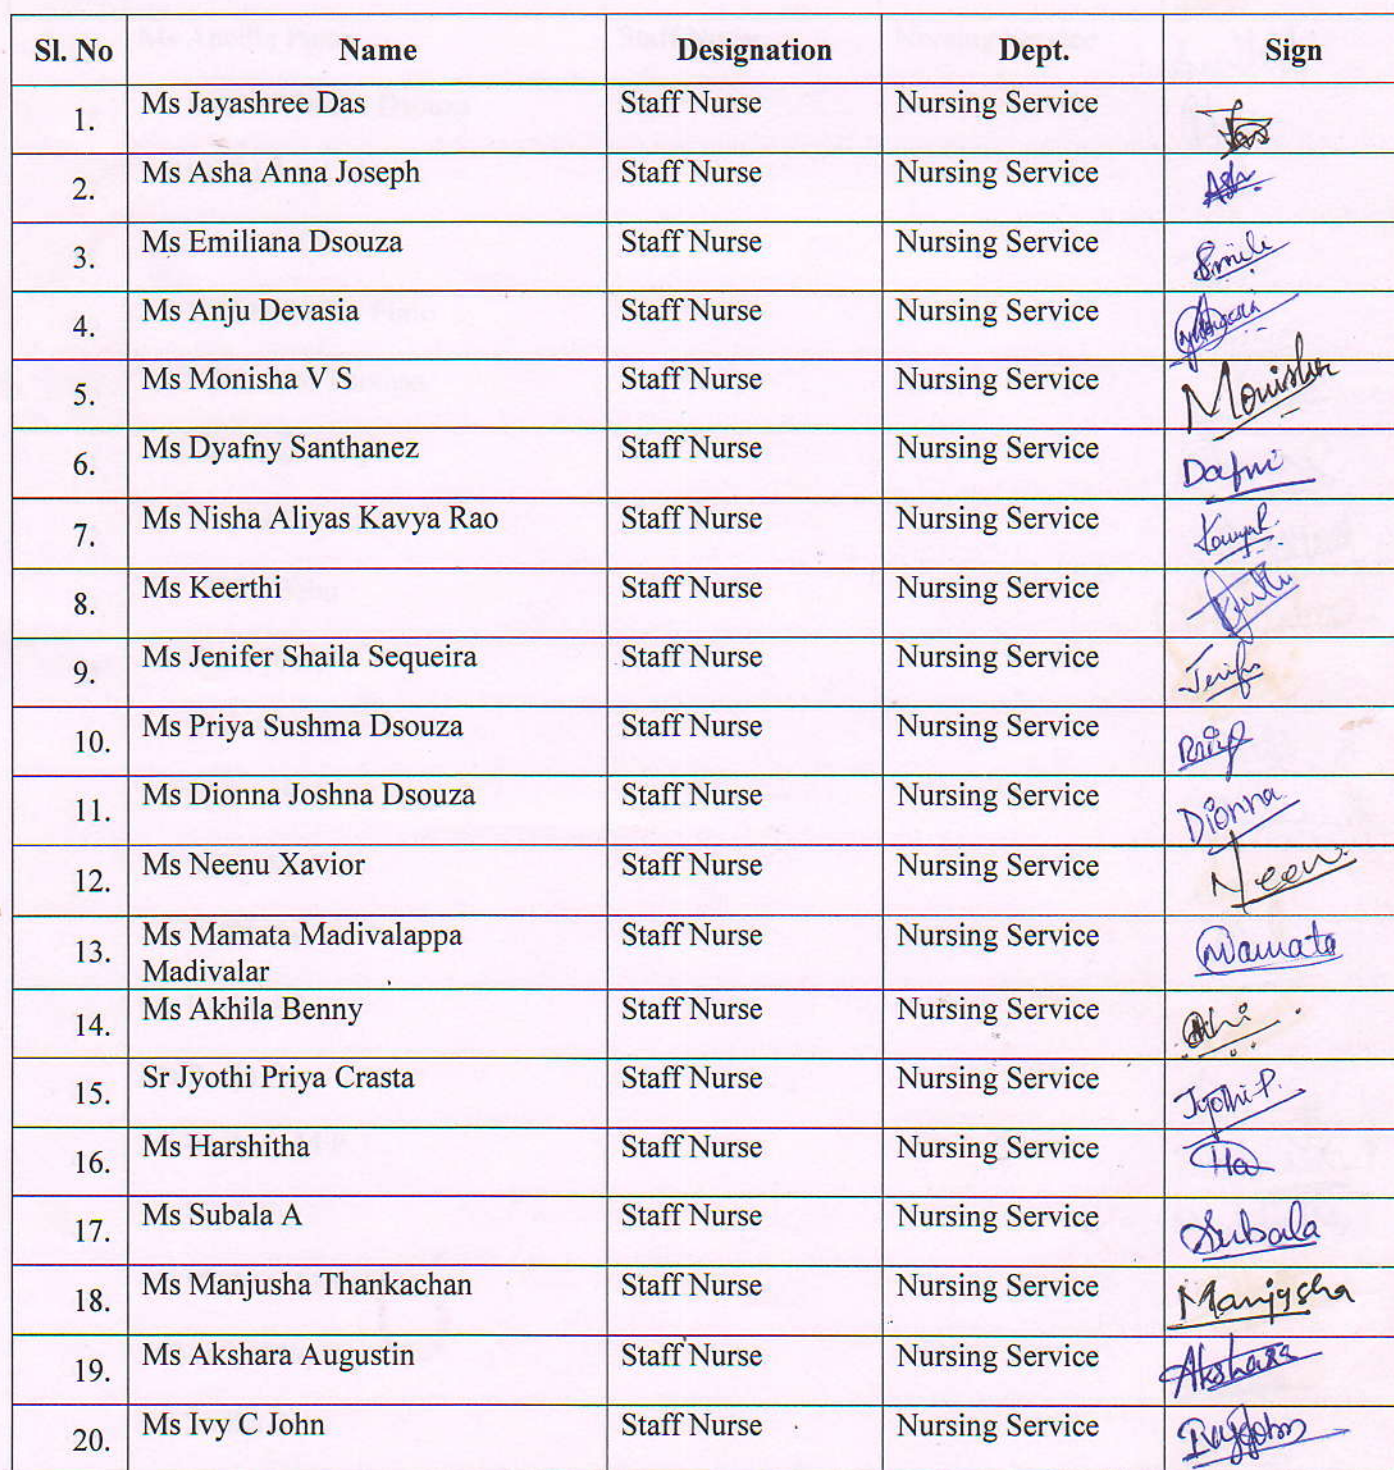 Sl. No Name Designation Dept. Sign
1. Ms Jayashree Das Staff Nurse Nursing Service
2. Ms Asha Anna Joseph Staff Nurse Nursing Service
3. Ms Emiliana Dsouza Staff Nurse Nursing Service
4. Ms Anju Devasia Staff Nurse Nursing Service
5. Ms Monisha V S Staff Nurse Nursing Service Monisha
6. Ms Dyafny Santhanez Staff Nurse Nursing Service Dafni
7. Ms Nisha Aliyas Kavya Rao Staff Nurse Nursing Service
8. Ms Keerthi Staff Nurse Nursing Service
9. Ms Jenifer Shaila Sequeira Staff Nurse Nursing Service
10. Ms Priya Sushma Dsouza Staff Nurse Nursing Service
11. Ms Dionna Joshna Dsouza Staff Nurse Nursing Service Dionna
12. Ms Neenu Xavior Staff Nurse Nursing Service
13. Ms Mamata Madivalappa Staff Nurse Nursing Service Mamata
Madivalar
14. Ms Akhila Benny Staff Nurse Nursing Service
15. Sr Jyothi Priya Crasta Staff Nurse Nursing Service Jyothi P.
16. Ms Harshitha Staff Nurse Nursing Service Ha
17. Ms Subala A Staff Nurse Nursing Service Subala
18. Ms Manjusha Thankachan Staff Nurse Nursing Service Manjusha
19. Ms Akshara Augustin Staff Nurse Nursing Service Akshara
20. Ms Ivy C John Staff Nurse Nursing Service